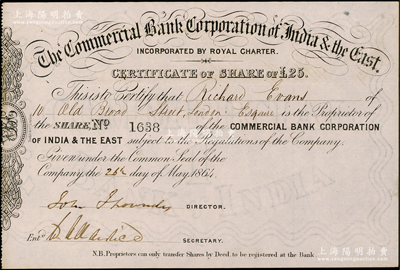 上海陽明拍賣
The Commercial Bank Corporation of India & the East.
INCORPORATED BY ROYAL CHARTER.
CERTIFICATE OF SHARE OF £25.
This is to Certify that Richard Evans of
10 Old Broad Street, London Esquire is the Proprietor of
the SHARE, No 1638 of the COMMERCIAL BANK CORPORATION
OF INDIA & THE EAST subject to the Regulations of the Company.
Given under the Common Seal of the
Company the 26th day of May 1864
John
DIRECTOR.
Entd
SECRETARY.
N.B. Proprietors can only transfer Shares by Deed to be registered at the Bank.